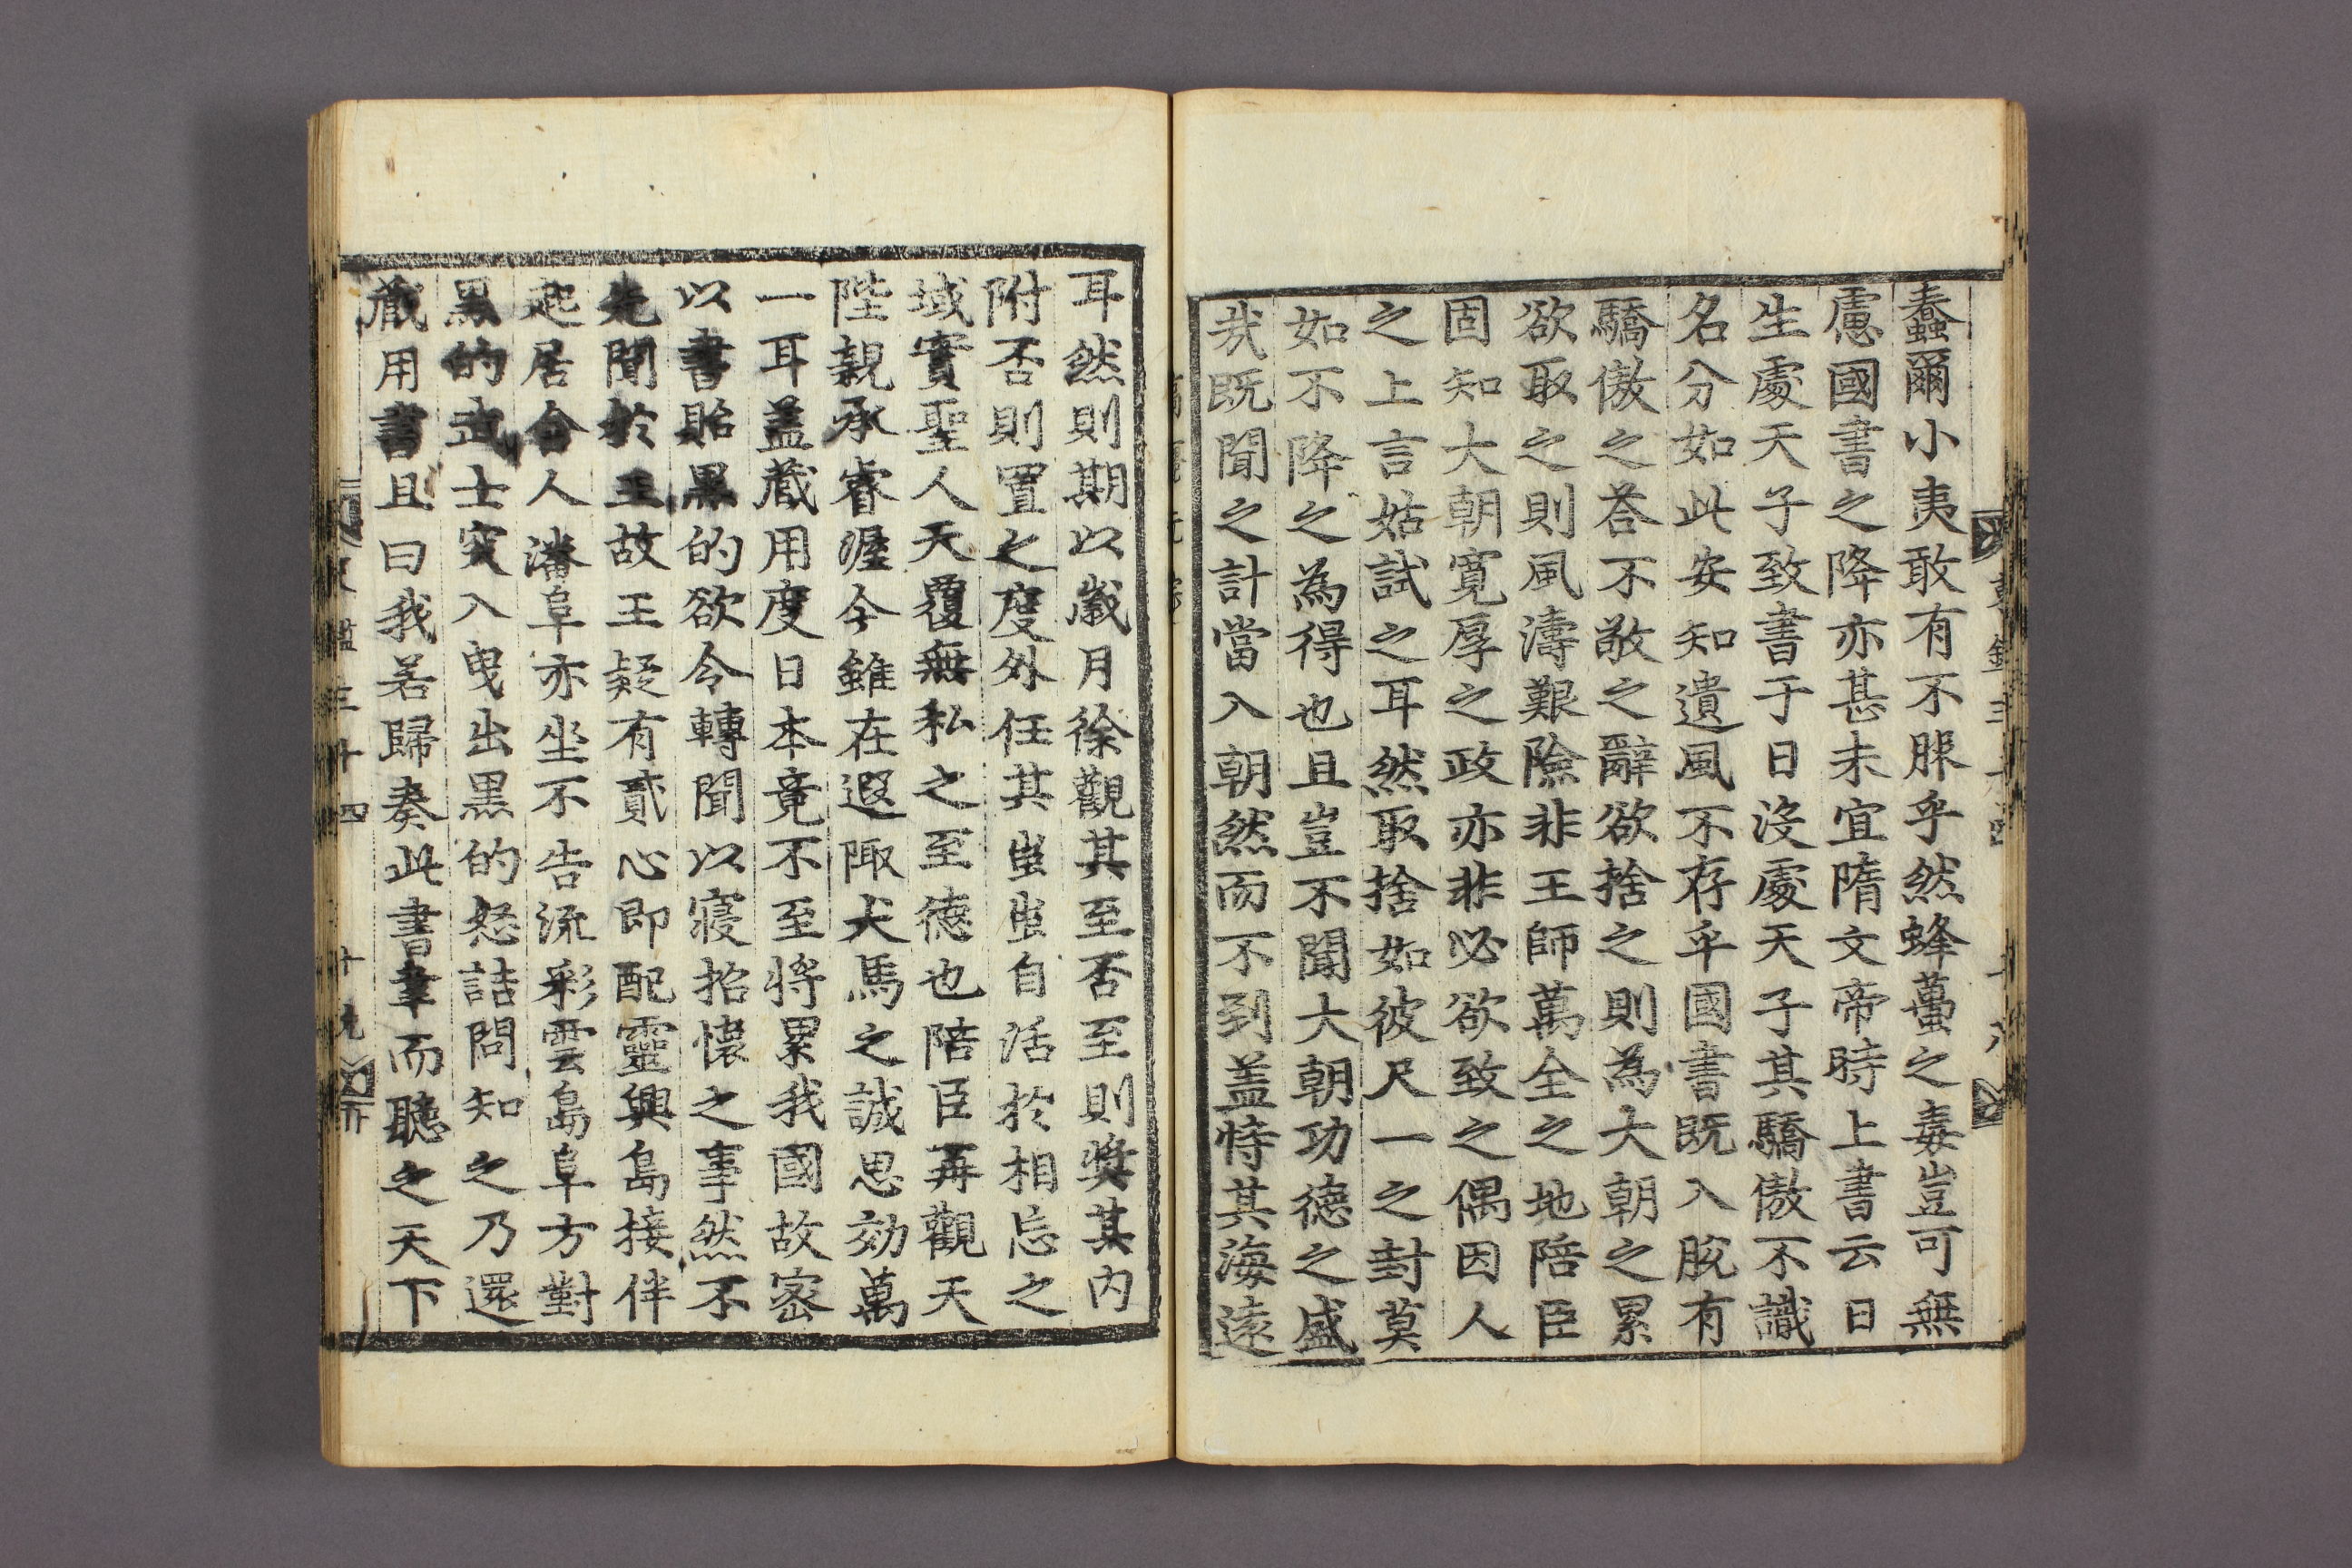 蠢爾小夷敢有不服乎然蜂蠆之毒豈可無
慮國書之降亦甚未宜隋文帝時上書云日
生處天子致書于日沒處天子其驕傲不識
名分如此安知遺風不存乎國書旣入脫有
驕傲之荅不敬之辭欲捨之則為大朝之累
欲取之則風濤艱險非王師萬全之地陪臣
固知大朝寬厚之政亦非必欲致之偶因人
之上言姑試之耳然取捨如彼尺一之封莫
如不降之為得也且豈不聞大朝功德之盛
㢤旣聞之計當入朝然而不到盖恃其海遠
耳然則期以歲月徐觀其至否至則奬其内
附否則置之度外任其蚩蚩自活於相忘之
域實聖人天覆無私之至德也陪臣再觀天
陛親承睿渥今雖在遐陬犬馬之誠思効萬
一耳盖藏用度日本竟不至將累我國故密
以書貽黑的欲令轉聞以寢招懷之事然不
先聞於王故王疑有貳心即配靈興島接伴
起居舍人潘阜亦坐不告流彩雲島阜方對
黑的武士突入曳出黑的怒詰問知之乃還
藏用書且曰我若歸奏此書聿而聽之天下